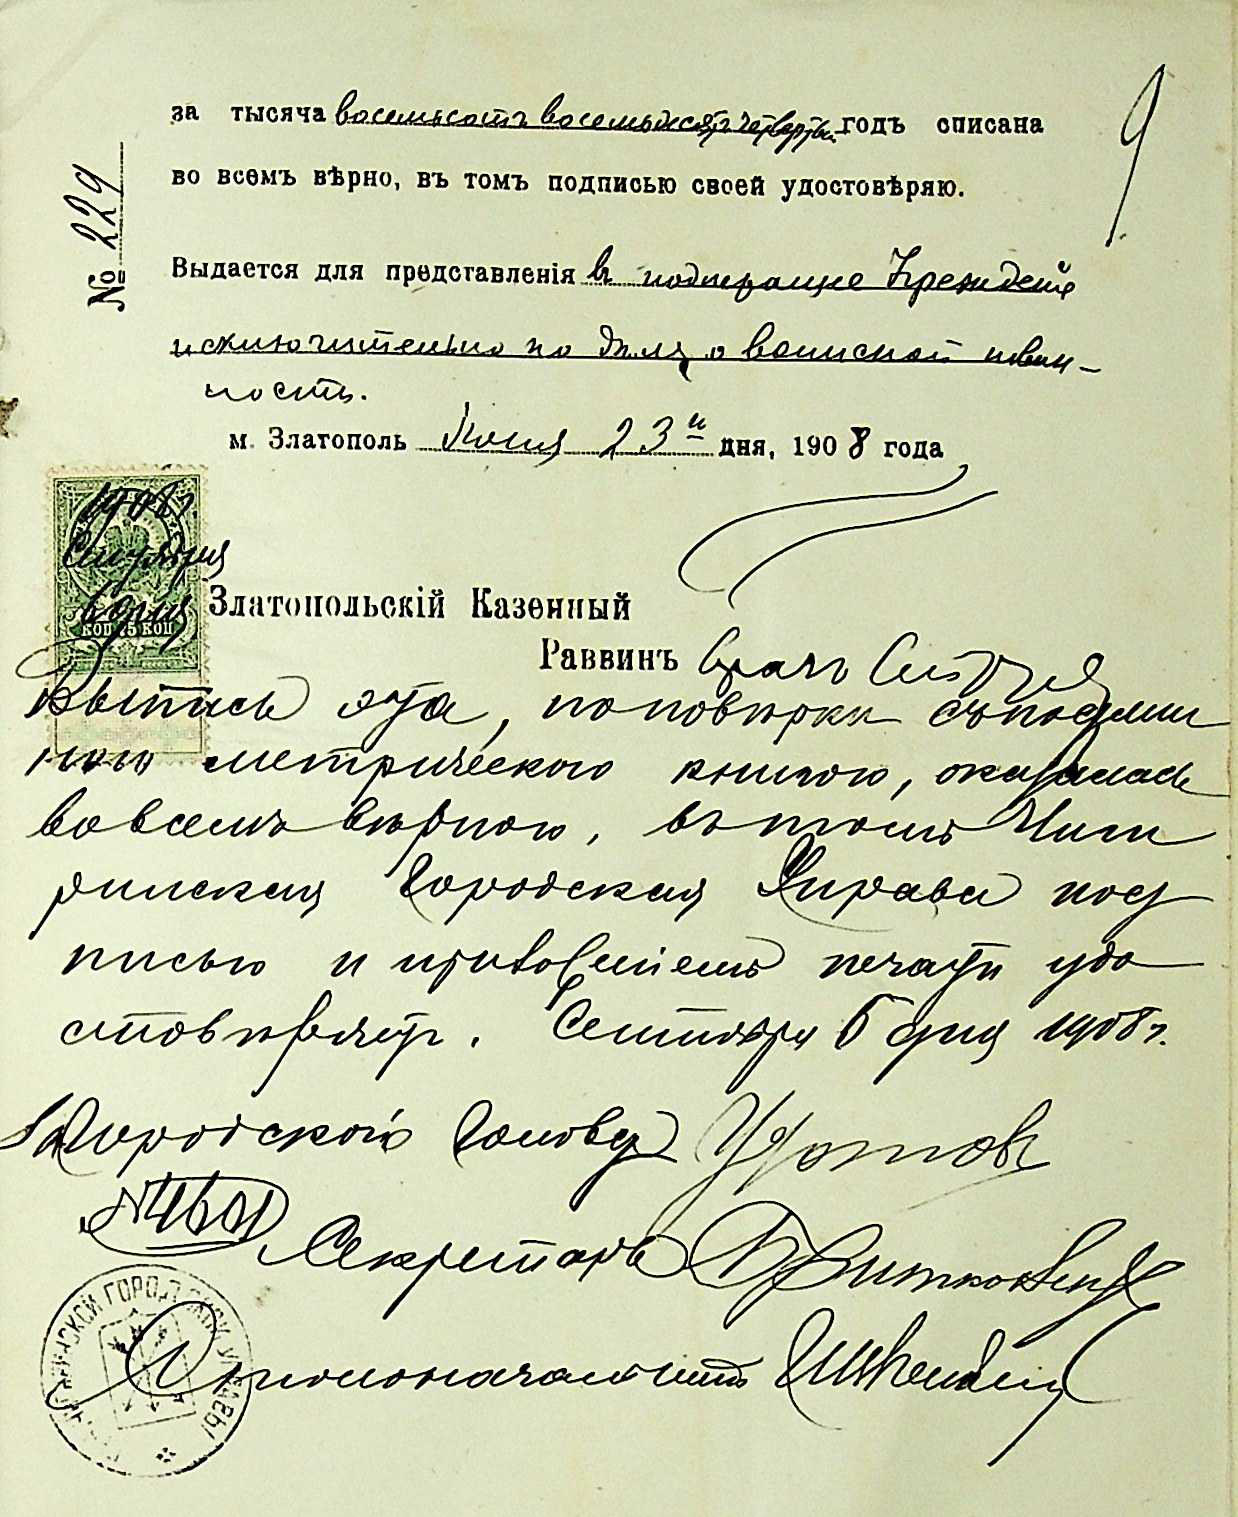 9
за тысяча восемьсотъ восемьдесятъ четвертый годъ списана
во всемъ вѣрно, въ томъ подписью своей удостовѣряю.
№ 229
Выдается для представленія в подлежащие
исключительно по дѣлу о воинской повин-
ность.
м. Златополь Июня 23 дня, 1908 года
1908 г.
Сентября
6 дня
5 коп
Златопольскій Казенный
Раввинъ врачъ
Выпись эта, по повѣрки съ подлин
ною метрическою книгою, оказалась
во всемъ вѣрною, въ томъ Чиги
ринская Городская Управа под
писью и приложеніемъ печати удо
стовѣряетъ. Сентября 6 дня 1908 г.
За Городского Голову
№ 1601
Секретарь
Столоначальникъ
ГОРОДСКОЙ УПРАВЫ